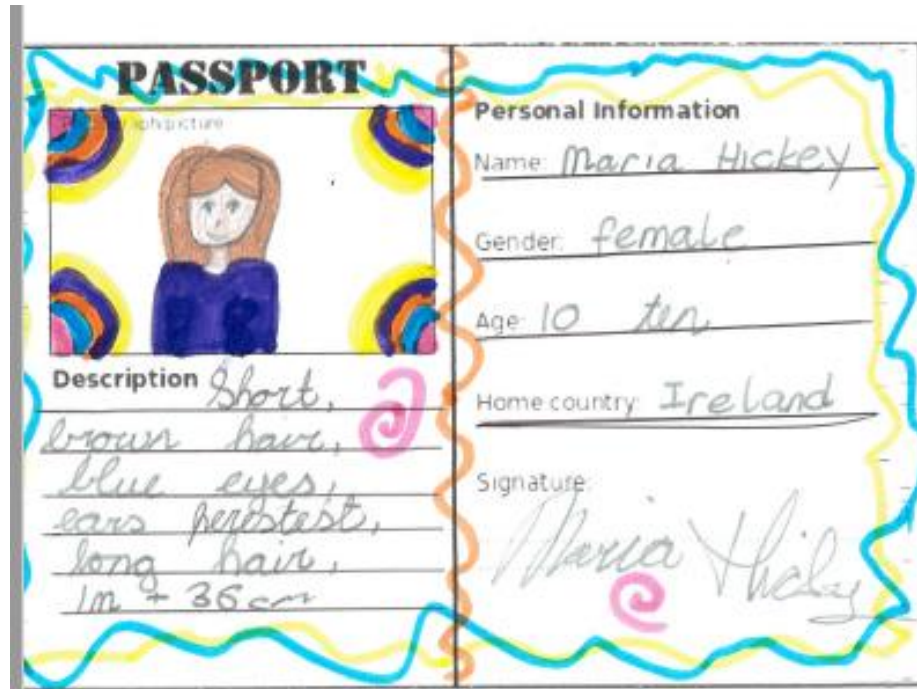 PASSPORT
picture
Description Short,
brown hair,
blue eyes,
ears
long hair,
1m + 36cm
Personal Information
Name: Maria Hickey
Gender: female
Age: 10 ten
Home country: Ireland
Signature:
Maria Hickey